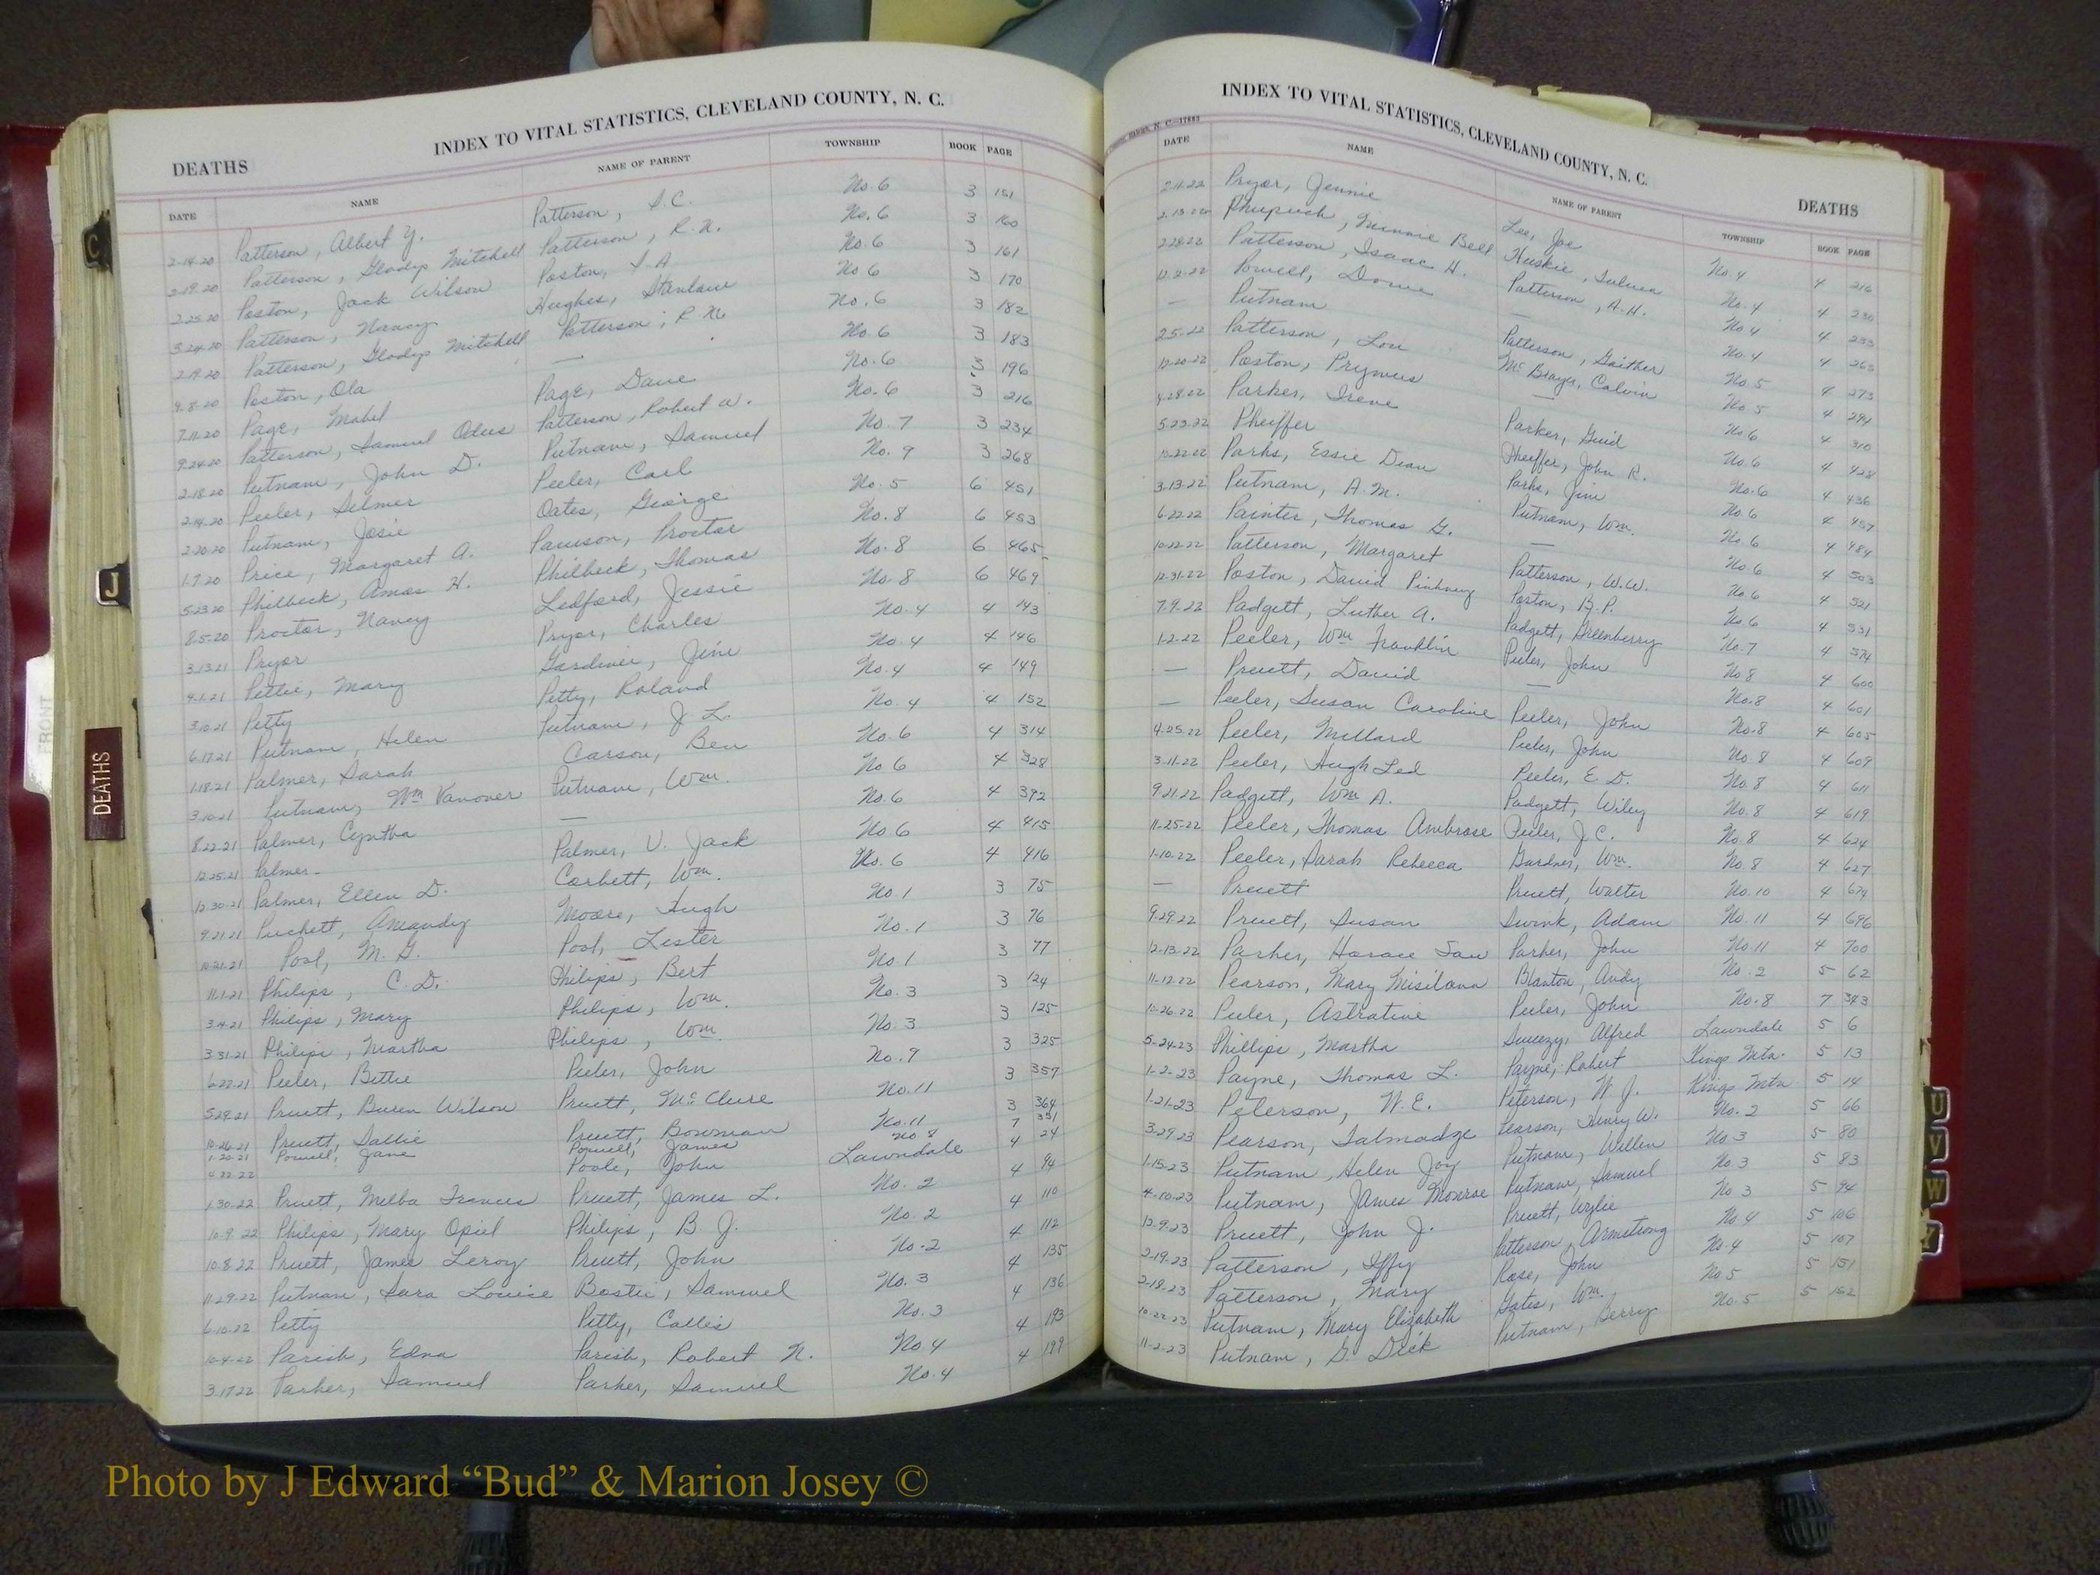 INDEX TO VITAL STATISTICS, CLEVELAND COUNTY, N. C.
DEATHS
DATE NAME NAME OF PARENT TOWNSHIP BOOK PAGE
2-14-20 Patterson, Albert Y. Patterson, S.C. No.6 3 151
2-19-20 Patterson, Gladys Mitchell Patterson, R.N. No.6 3 160
2-25-20 Poston, Jack Wilson Poston, S.A. No.6 3 161
3-24-20 Patterson, Nancy Hughes, No 6 3 170
2-19-20 Patterson, Gladys Mitchell Patterson, R.N. No.6 3 182
9-8-20 Poston, Ola — No.6 3 183
7-11-20 Page, Mabel Page, Dave No.6 3 196
9-24-20 Patterson, Samuel Odus Patterson, Robert W. No.6 3 216
2-18-20 Putnam, John D. Putnam, Samuel No.7 3 234
2-14-20 Peeler, Selmer Peeler, Carl No.9 3 268
2-20-20 Putnam, Josie Oates, George No.5 6 451
1-7-20 Price, Margaret A. Proctor No.8 6 453
5-23-20 Philbeck, Amos H. Philbeck, Thomas No.8 6 465
8-5-20 Proctor, Nancy Ledford, Jessie No.8 6 469
3-13-21 Pryor Pryor, Charles No.4 4 143
9-1-21 Pettie, Mary Gardner, Jim No.4 4 146
3-10-21 Petty Petty, Roland No.4 4 149
6-17-21 Putnam, Helen Putnam, J.L. No.4 4 152
1-18-21 Palmer, Sarah Carson, Ben No.6 4 314
3-10-21 Putnam, Wm Vanover Putnam, Wm. No 6 4 328
8-22-21 Palmer, Cyntha — No.6 4 392
12-25-21 Palmer Palmer, V. Jack No.6 4 415
12-30-21 Palmer, Ellen D. Corbett, Wm. No.6 4 416
9-21-21 Puckett, Amandy Moore, Hugh No.1 3 75
10-21-21 Pool, M.G. Pool, Lester No.1 3 76
11-1-21 Philips, C.D. Philips, Bert No.1 3 77
3-4-21 Philips, Mary Philips, Wm. No.3 3 124
3-31-21 Philips, Martha Philips, Wm. No.3 3 125
6-27-21 Peeler, Bettie Peeler, John No.9 3 325
5-29-21 Pruett, Buren Wilson Pruett, McClure No.11 3 357
10-26-21 Pruett, Sallie Pruett, Bowman No.11 3 364
1-20-21 Powell, Jane Powell, James No 8 7 351
4-22-22 Poole, John Lawndale 4 24
1-30-22 Pruett, Melba Frances Pruett, James L. No.2 4 94
10-9-22 Philips, Mary Opiel Philips, B.J. No.2 4 110
10-8-22 Pruett, James Leroy Pruett, John No.2 4 112
11-29-22 Putnam, Sara Louise Bostic, Samuel No.3 4 135
6-10-22 Petty Petty, Callis No.3 4 136
10-4-22 Parish, Edna Parish, Robert N. No.4 4 193
3-17-22 Parker, Samuel Parker, Samuel No.4 4 199
INDEX TO VITAL STATISTICS, CLEVELAND COUNTY, N. C.
DEATHS
DATE NAME NAME OF PARENT TOWNSHIP BOOK PAGE
2-11-22 Pryor, Jennie Lee, Joe No.4 4 216
2-13-22 Minnie Bell Huskie, Julius No.4 4 230
2-28-22 Patterson, Isaac H. Patterson, A.H. No.4 4 233
12-2-22 Powell, Dovie — No.4 4 263
— Putnam Patterson, Gaither No.5 4 273
2-5-22 Patterson, Lou McBrayer, Calvin No.5 4 294
12-20-22 Poston, Prymus — No.6 4 310
4-28-22 Parker, Irene Parker, Guid No.6 4 428
5-23-22 Pheiffer Pheiffer, John R. No.6 4 436
10-22-22 Parks, Essie Dean Parks, Jim No.6 4 457
3-13-22 Putnam, A.M. Putnam, Wm. No.6 4 484
6-22-22 Painter, Thomas G. — No.6 4 503
10-22-22 Patterson, Margaret Patterson, W.W. No.6 4 521
12-31-22 Poston, David Pinkney Poston, B.P. No.6 4 531
7-9-22 Padgett, Luther A. Padgett, Greenberry No.7 4 574
1-2-22 Peeler, Wm Franklin Peeler, John No 8 4 600
— Pruett, David — No.8 4 601
— Peeler, Susan Caroline Peeler, John No.8 4 605
4-25-22 Peeler, Millard Peeler, John No.8 4 609
3-11-22 Peeler, Hugh Led Peeler, E.D. No.8 4 611
9-21-22 Padgett, Wm A. Padgett, Wiley No.8 4 619
11-25-22 Peeler, Thomas Ambrose Peeler, J.C. No.8 4 624
1-10-22 Peeler, Sarah Rebecca Gardner, Wm. No 8 4 627
— Pruett Pruett, Walter No.10 4 679
9-29-22 Pruett, Susan Swink, Adam No.11 4 696
12-13-22 Parker, Horace Parker, John No 11 4 700
11-12-22 Pearson, Mary Blanton, Andy No.2 5 62
10-26-22 Peeler, Astrative Peeler, John No.8 7 343
5-24-23 Phillips, Martha Sweezy, Alfred Lawndale 5 6
1-2-23 Payne, Thomas L. Payne, Robert Kings Mtn. 5 13
1-21-23 Peterson, W.E. Peterson, W.J. Kings Mtn 5 14
3-29-23 Pearson, Talmadge Pearson, Henry W. No.2 5 66
1-15-23 Putnam, Helen Joy Putnam, Willen No 3 5 80
4-10-23 Putnam, James Monroe Putnam, Samuel No.3 5 83
12-9-23 Pruett, John J. Pruett, Wylie No 3 5 94
2-19-23 Patterson, Iffy Patterson, Armstrong No.4 5 106
2-18-23 Patterson, Mary Rose, John No.4 5 107
10-22-23 Putnam, Mary Elizabeth Gates, Wm. No 5 5 151
11-2-23 Putnam, G. Dick Putnam, Berry No.5 5 162
C
J
DEATHS
FRONT
U
V
W
Y
Photo by J Edward “Bud” & Marion Josey ©